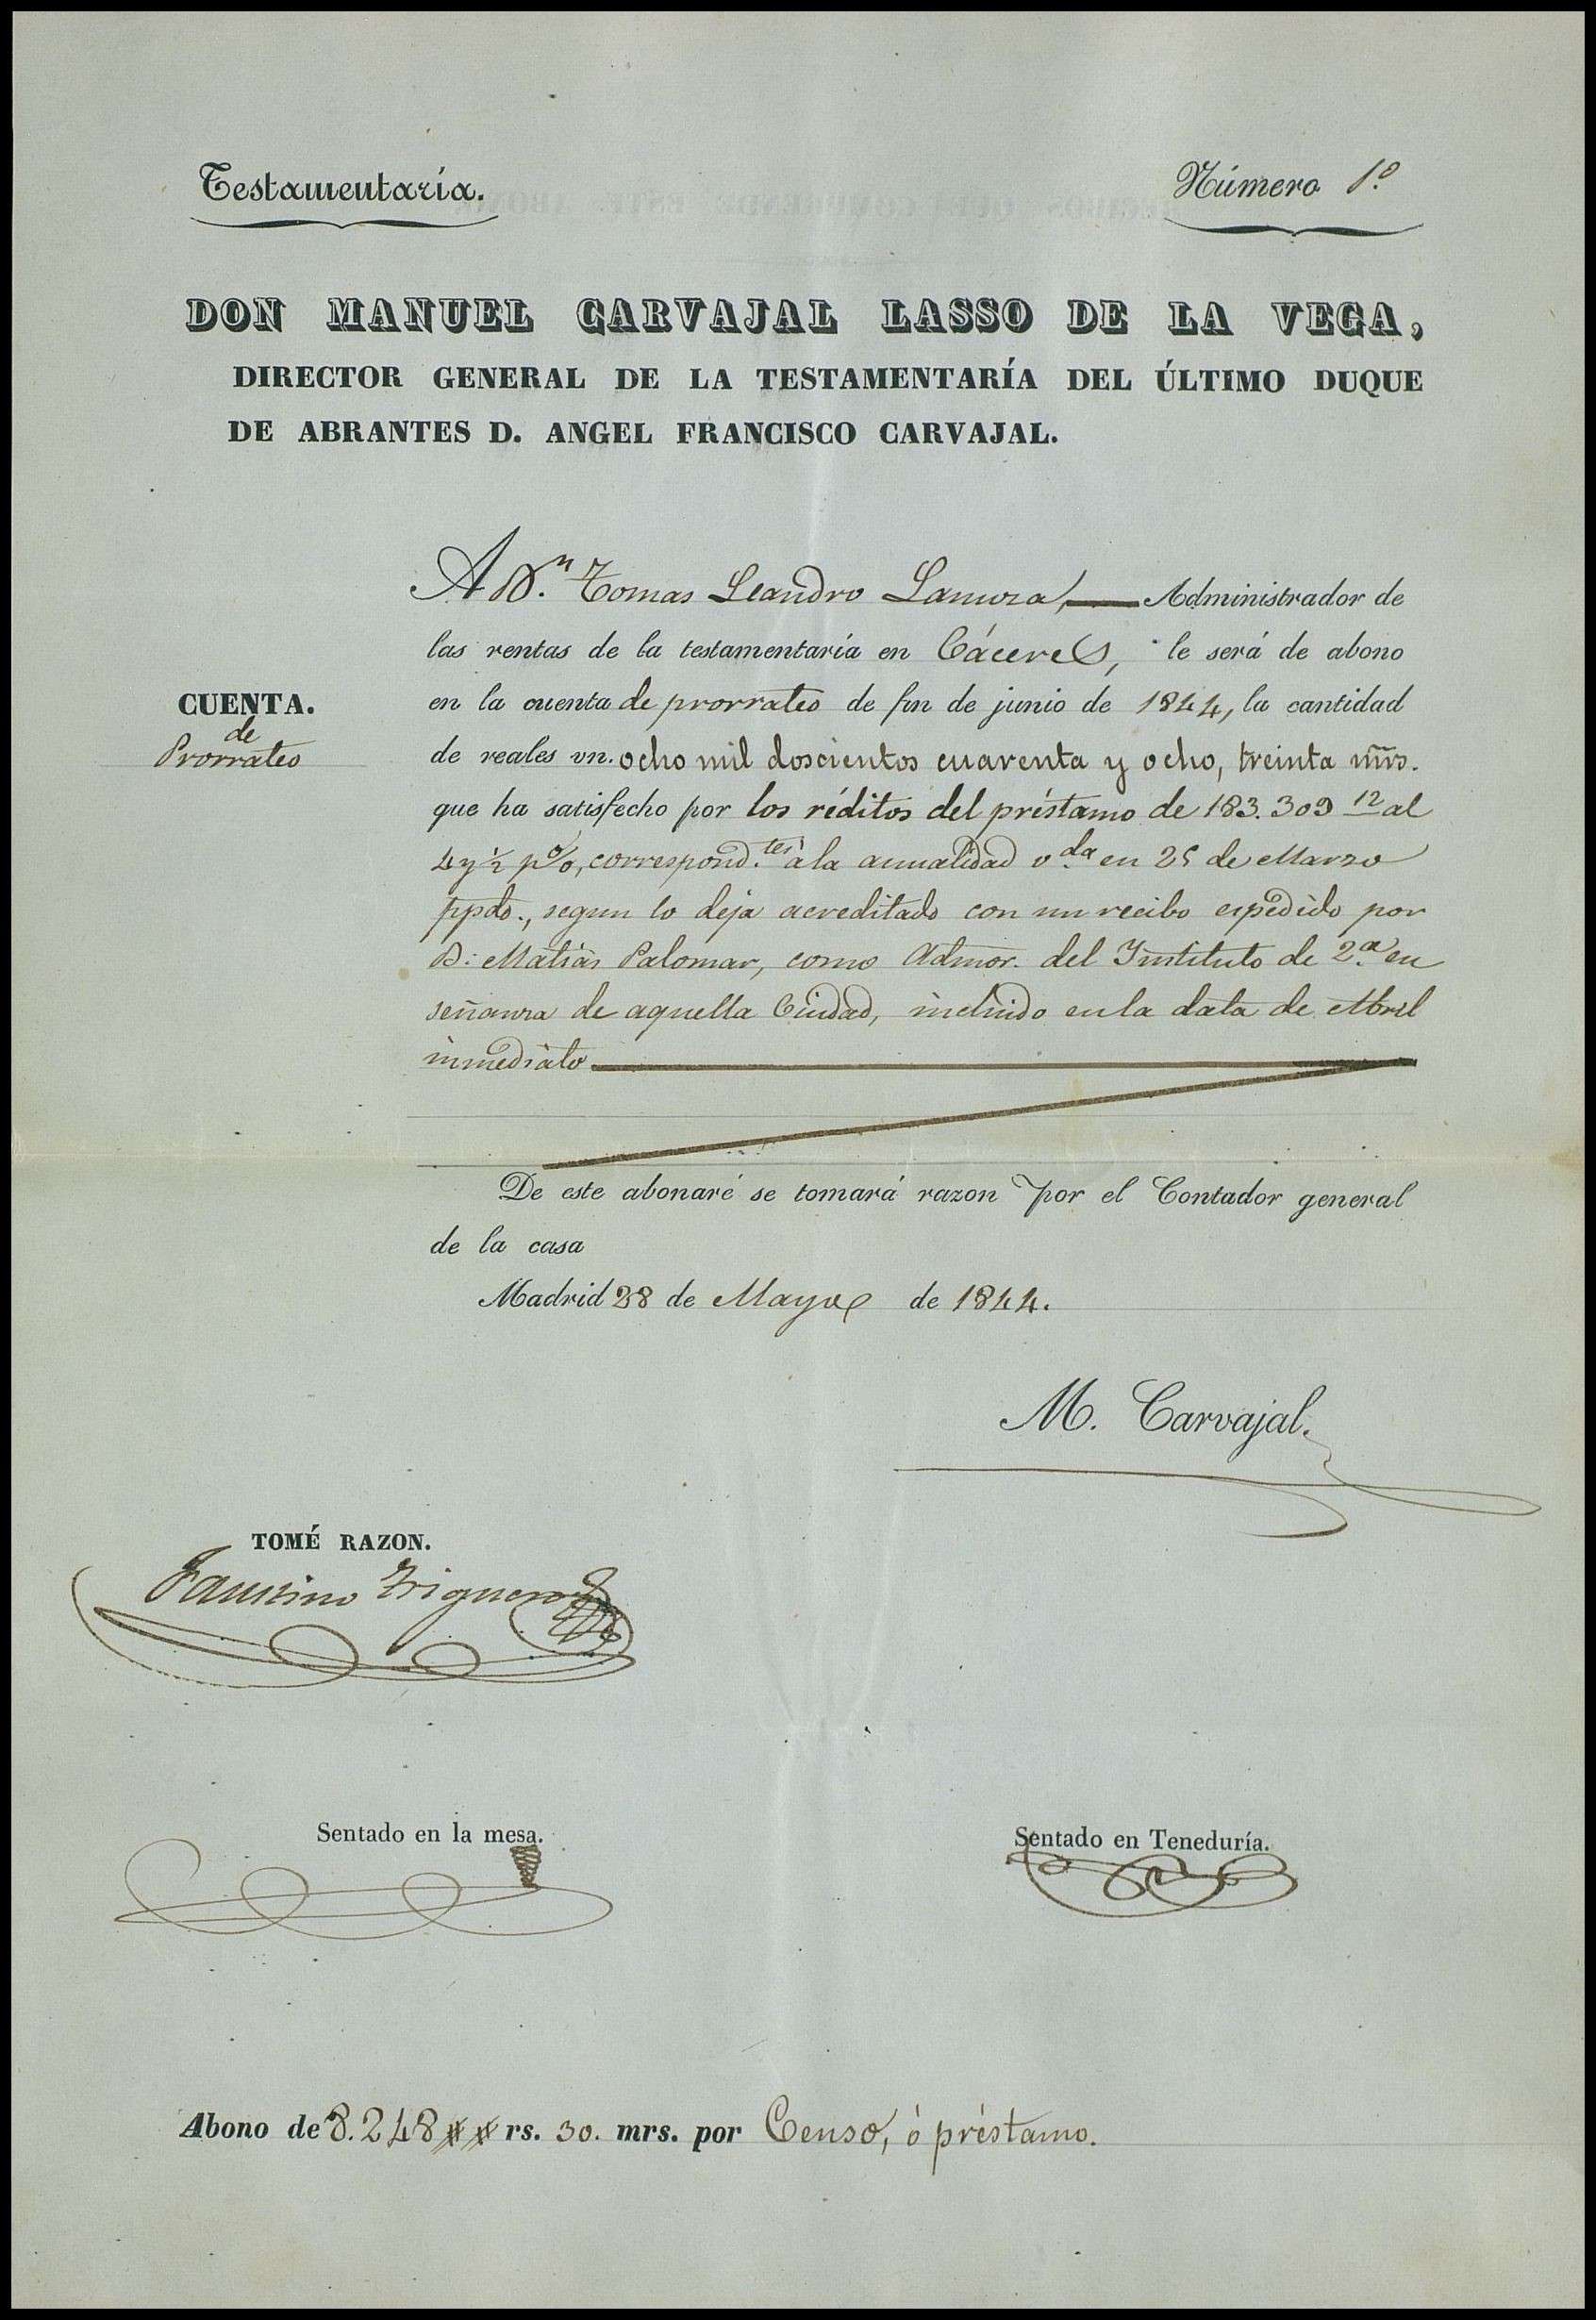 Testamentaría.
Número 1.º
DON MANUEL CARVAJAL LASSO DE LA VEGA,
DIRECTOR GENERAL DE LA TESTAMENTARÍA DEL ÚLTIMO DUQUE
DE ABRANTES D. ANGEL FRANCISCO CARVAJAL.
A D.n Tomas Leandro Lamoza, Administrador de
las rentas de la testamentaría en Cáceres, le será de abono
CUENTA.
de
Prorrateo
en la cuenta de prorrateo de fin de junio de 1844, la cantidad
de reales vn. ocho mil doscientos cuarenta y ocho, treinta mrs.
que ha satisfecho por los réditos del préstamo de 183.309 12 al
4 y ½ p%, correspond.tes á la anualidad v.da en 25 de Marzo
ppdo., segun lo deja acreditado con un recibo espedido por
D. Matías Palomar, como Admor. del Instituto de 2.a en
señanza de aquella Ciudad, incluido en la data de Abril
inmediato
De este abonaré se tomará razon por el Contador general
de la casa
Madrid 28 de Mayo de 1844.
M. Carvajal.
TOMÉ RAZON.
Faustino Trigueros
Sentado en la mesa.
Sentado en Teneduría.
Abono de 8.248 rs. 30. mrs. por Censo, ó préstamo.